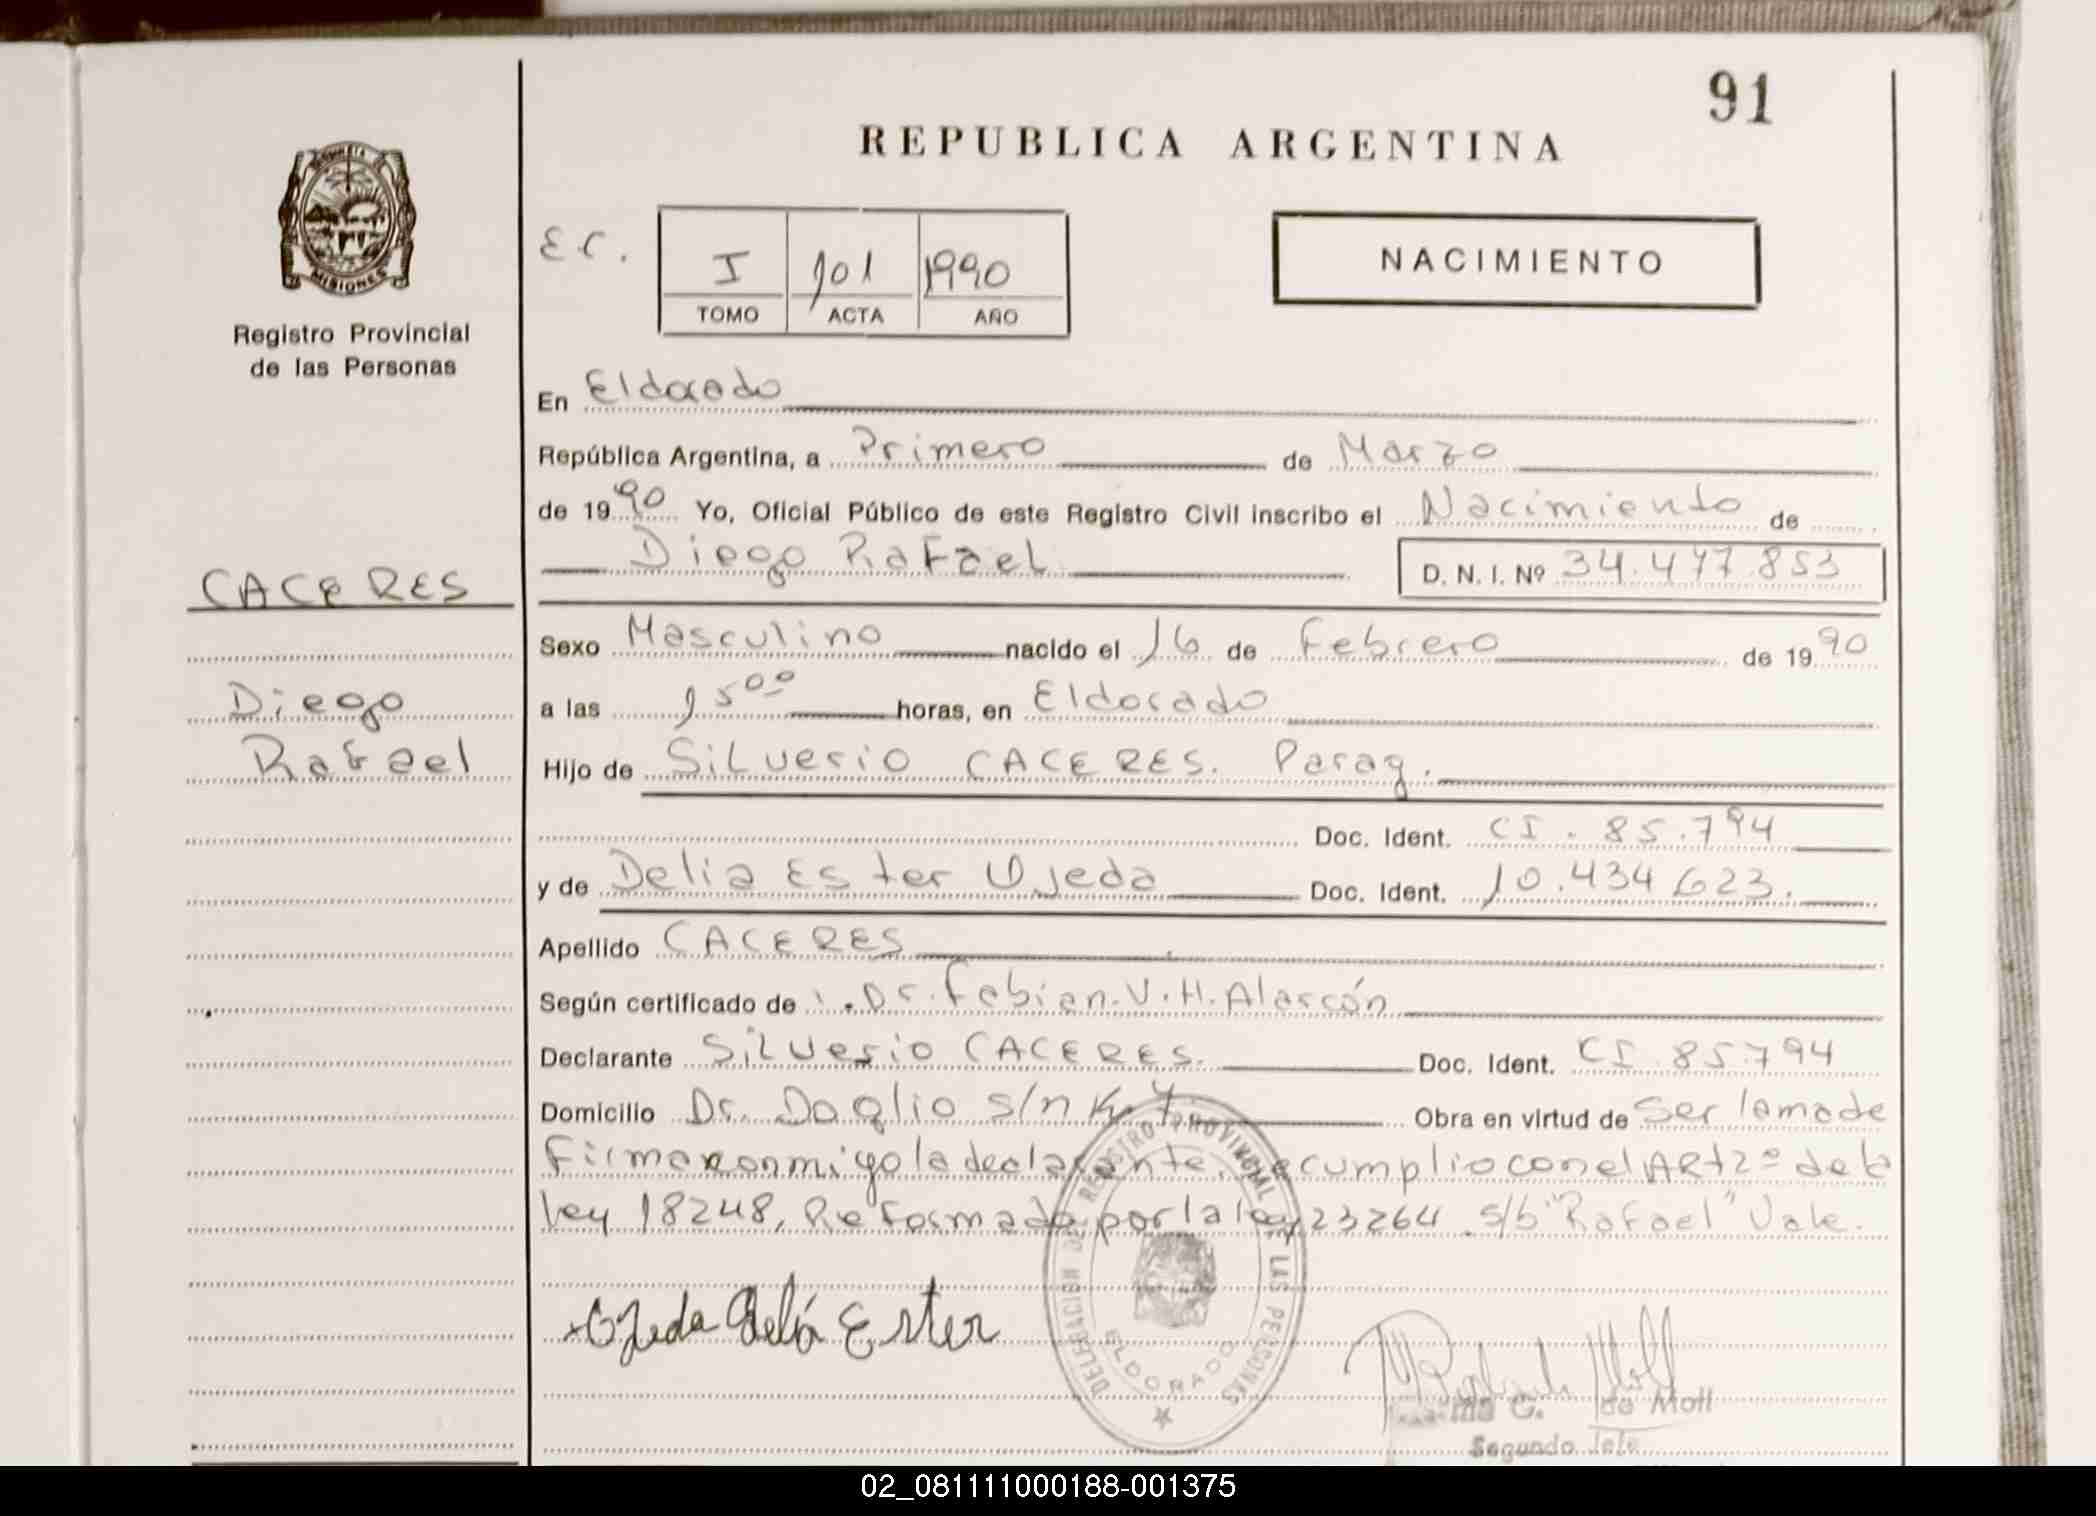 91
REPUBLICA ARGENTINA
MISIONES
Registro Provincial
de las Personas
E C.
I 101 1990
TOMO ACTA AÑO
NACIMIENTO
En Eldorado
República Argentina, a Primero de Marzo
de 1990 Yo, Oficial Público de este Registro Civil inscribo el Nacimiento de
Diego Rafael D. N. I. Nº 34.477.853
CACERES
Diego
Rafael
Sexo Masculino nacido el 16 de Febrero de 1990
a las 15 00 horas, en Eldorado
Hijo de Silverio CACERES. Parag.
Doc. Ident. CI. 85.794
y de Delia Ester Ojeda Doc. Ident. 10.434.623.
Apellido CACERES
Según certificado de Dr. Fabian. V. H. Alarcón
Declarante Silverio CACERES. Doc. Ident. CI. 85.794
Domicilio Dr. Doglio s/n K Obra en virtud de Ser la made
Firma conmigo la declarante, se cumplio con el ART 2º de la
ley 18248, Reformada por la ley 23264. s/b "Rafael" Vale.
DELEGACION DEL REGISTRO PROVINCIAL DE LAS PERSONAS
ELDORADO
Ojeda Delia Ester
G. de Moll
Segundo Jefe
02_081111000188-001375